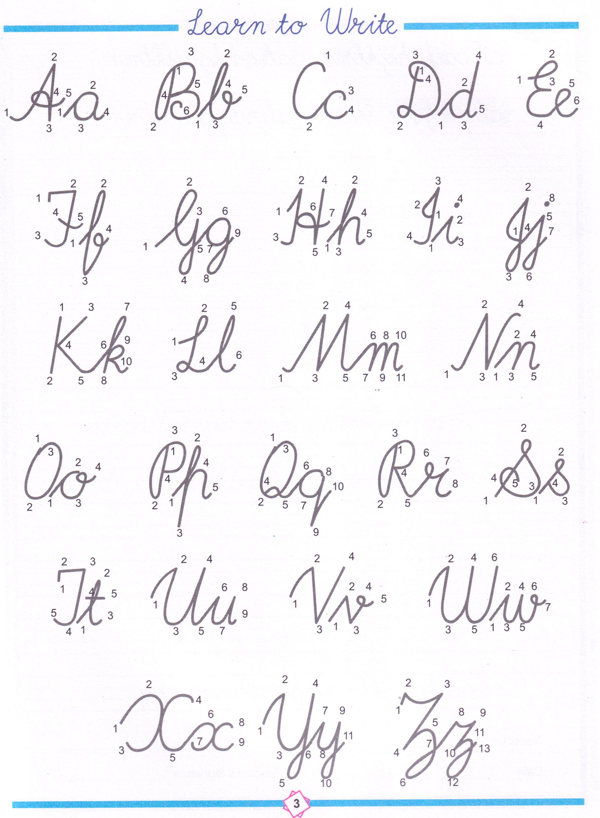 Learn to Write
Aa Bb Cc Dd Ee
Ff Gg Hh Ii Jj
Kk Ll Mm Nn
Oo Pp Qq Rr Ss
Tt Uu Vv Ww
Xx Yy Zz
3